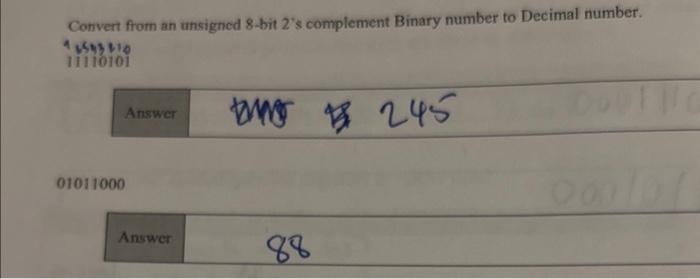 Convert from an unsigned 8-bit 2's complement Binary number to Decimal number.
11110101
Answer 245
01011000
Answer 88